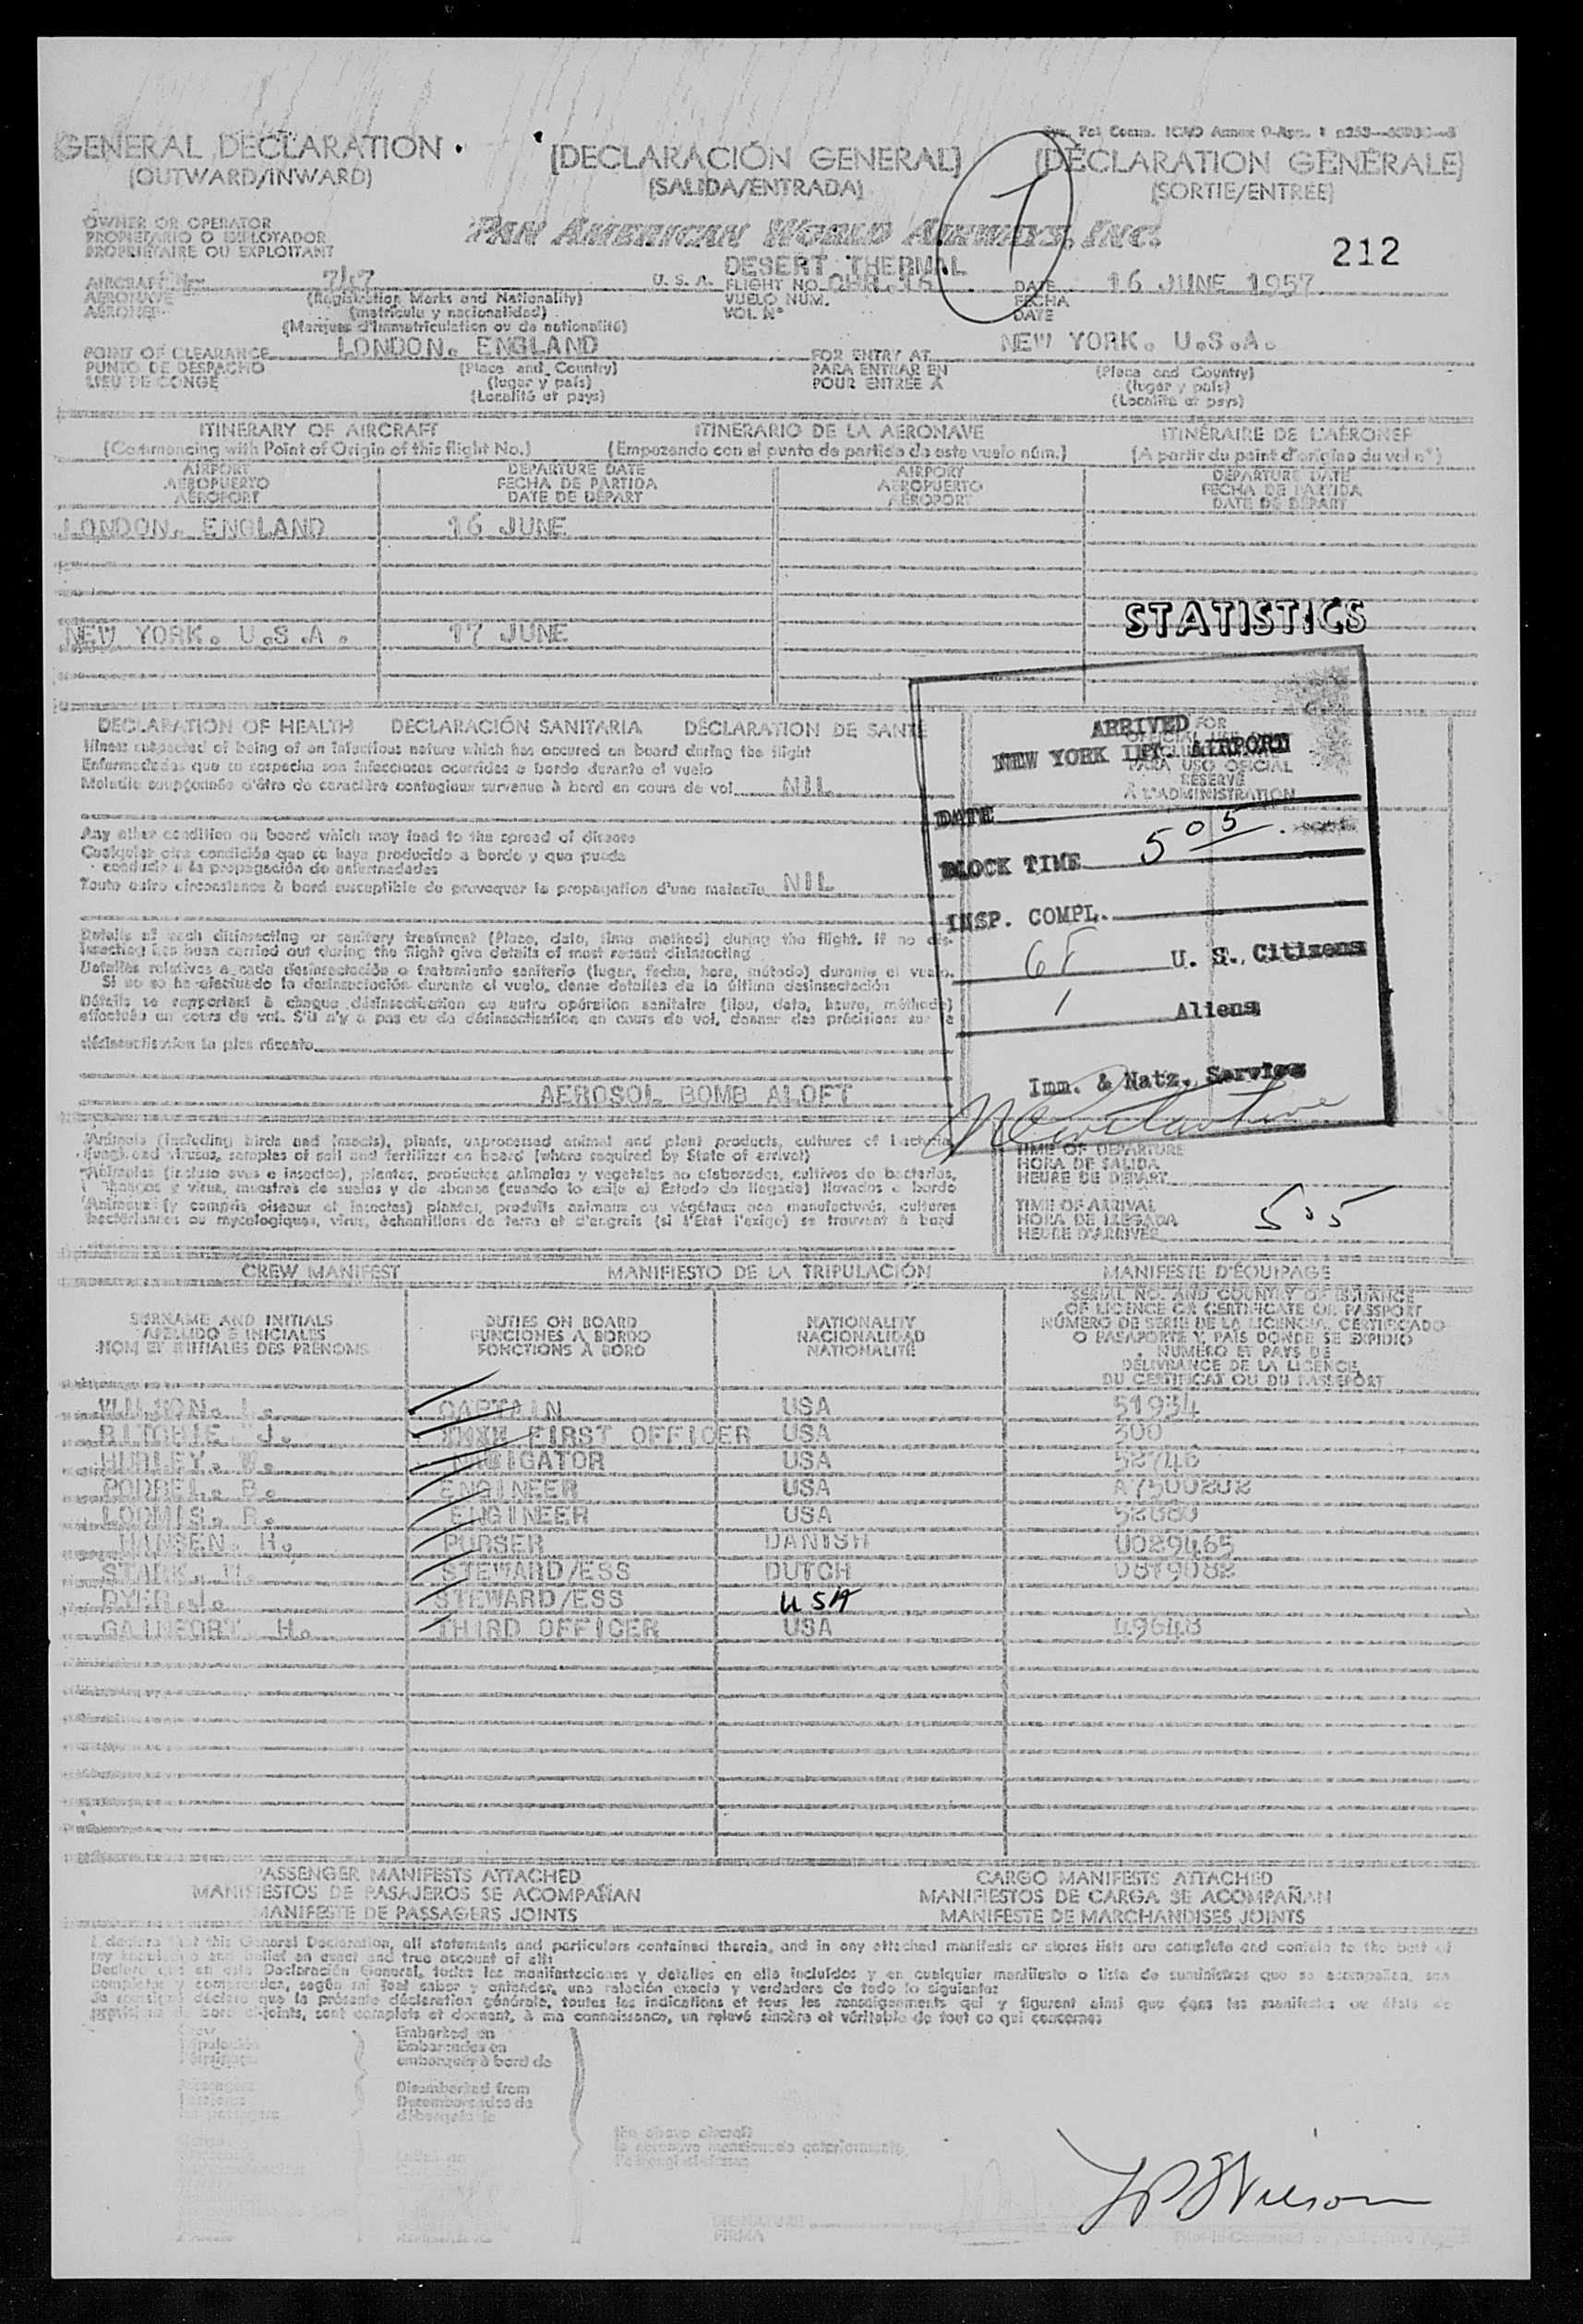 GENERAL DECLARATION
(OUTWARD/INWARD)
[DECLARACIÓN GENERAL]
(SALIDA/ENTRADA)
(DÉCLARATION GÉNÉRALE)
(SORTIE/ENTREE)
OWNER OR OPERATOR
PROPIETARIO O EXPLOTADOR
PROPRIETAIRE OU EXPLOITANT
PAN AMERICAN WORLD AIRWAYS, INC.
212
1
DESERT THERMAL
AIRCRAFT 747 U. S. A. FLIGHT NO. DATE 16 JUNE 1957
AERONAVE (Registration Marks and Nationality) VUELO NUM. FECHA
AERONEF (matricula y nacionalidad) VOL N° DATE
(Marques d'immatriculation ou de nationalité)
POINT OF CLEARANCE LONDON. ENGLAND FOR ENTRY AT NEW YORK. U.S.A.
PUNTO DE DESPACHO (Place and Country) PARA ENTRAR EN (Place and Country)
LIEU DE CONGE (lugar y país) POUR ENTRÉE A (lugar y país)
(Localité et pays) (Localité et pays)
ITINERARY OF AIRCRAFT ITINERARIO DE LA AERONAVE ITINÉRAIRE DE L'AÉRONEF
(Commencing with Point of Origin of this flight No.) (Empezando con el punto de partida de este vuelo núm.) (A partir du point d'origine du vol n°)
AIRPORT DEPARTURE DATE AIRPORT DEPARTURE DATE
AEROPUERTO FECHA DE PARTIDA AEROPUERTO FECHA DE PARTIDA
AÉROPORT DATE DE DÉPART AÉROPORT DATE DE DÉPART
LONDON. ENGLAND 16 JUNE
STATISTICS
NEW YORK. U.S.A. 17 JUNE
DECLARATION OF HEALTH DECLARACIÓN SANITARIA DÉCLARATION DE SANTÉ
Illness suspected of being of an infectious nature which has occured on board during the flight
Enfermedades que se sospecha son infecciosas ocurridas a bordo durante el vuelo
Maladie soupçonnée d'être de caractère contagieux survenue à bord en cours de vol NIL
Any other condition on board which may lead to the spread of disease
Cualquier otra condición que se haya producido a bordo y que pueda
conducir a la propagación de enfermedades
Toute autre circonstance à bord susceptible de provoquer la propagation d'une maladie NIL
Details of each disinsecting or sanitary treatment (Place, date, time method) during the flight. If no dis-
insecting has been carried out during the flight give details of most recent disinsecting
Detalles relativos a cada desinsectación o tratamiento sanitario (lugar, fecha, hora, método) durante el vuelo.
Si no se ha efectuado la desinsectación durante el vuelo, dense detalles de la última desinsectación
Détails se rapportant à chaque désinsectisation ou autre opération sanitaire (lieu, date, heure, méthode)
effectuée en cours de vol. S'il n'y a pas eu de désinsectisation en cours de vol, donner des précisions sur la
désinsectisation la plus récente
AEROSOL BOMB ALOFT
FOR
OFFICIAL USE
PARA USO OFICIAL
RÉSERVÉ
À L'ADMINISTRATION
ARRIVED
NEW YORK INT. AIRPORT
DATE
BLOCK TIME 505
INSP. COMPL.
U. S. Citizens
1 Aliens
Imm. & Natz. Service
Animals (including birds and insects), plants, unprocessed animal and plant products, cultures of bacteria,
fungi and viruses, samples of soil and fertilizer on board (where required by State of arrival)
Animales (incluso aves e insectos), plantas, productos animales y vegetales no elaborados, cultivos de bacterias,
hongos y virus, muestras de suelos y de abonos (cuando lo exija el Estado de llegada) llevados a bordo
Animaux (y compris oiseaux et insectes) plantes, produits animaux ou végétaux non manufacturés, cultures
bactériennes ou mycologiques, virus, échantillons de terre et d'engrais (si l'Etat l'exige) se trouvent à bord
TIME OF DEPARTURE
HORA DE SALIDA
HEURE DE DEPART
TIME OF ARRIVAL
HORA DE LLEGADA 505
HEURE D'ARRIVÉE
CREW MANIFEST MANIFIESTO DE LA TRIPULACIÓN MANIFESTE D'ÉQUIPAGE
SURNAME AND INITIALS
APELLIDO E INICIALES
NOM ET INITIALES DES PRENOMS
DUTIES ON BOARD
FUNCIONES A BORDO
FONCTIONS À BORD
NATIONALITY
NACIONALIDAD
NATIONALITÉ
SERIAL NO. AND COUNTRY OF ISSUANCE
OF LICENCE OR CERTIFICATE OR PASSPORT
NÚMERO DE SERIE DE LA LICENCIA, CERTIFICADO
O PASAPORTE Y PAIS DONDE SE EXPIDIO
NUMERO ET PAYS DE
DÉLIVRANCE DE LA LICENCE
DU CERTIFICAT OU DU PASSEPORT
WILSON. L. CAPTAIN USA 51934
RITCHIE. J. FIRST OFFICER USA 300
HURLEY. W. NAVIGATOR USA 52746
ENGINEER USA A7500202
LOOMIS. R. ENGINEER USA 52680
HANSEN. H. PURSER DANISH U029465
STEWARD/ESS DUTCH
DYER. J. STEWARD/ESS USA
GAINFORT. H. THIRD OFFICER USA 49648
PASSENGER MANIFESTS ATTACHED CARGO MANIFESTS ATTACHED
MANIFIESTOS DE PASAJEROS SE ACOMPAÑAN MANIFIESTOS DE CARGA SE ACOMPAÑAN
MANIFESTE DE PASSAGERS JOINTS MANIFESTE DE MARCHANDISES JOINTS
I declare that this General Declaration, all statements and particulars contained therein, and in any attached manifests or stores lists are complete and contain to the best of
my knowledge and belief an exact and true account of all:
Declaro que en esta Declaración General, todas las manifestaciones y detalles en ella incluidos y en cualquier manifiesto o lista de suministros que se acompañan, son
completos y comprenden, según mi leal saber y entender, una relación exacta y verdadera de todo lo siguiente:
Je soussigné déclare que la présente déclaration générale, toutes les indications et tous les renseignements qui y figurent ainsi que dans les manifestes ou états de
provisions de bord ci-joints, sont complets et donnent, à ma connaissance, un relevé sincère et véritable de tout ce qui concerne:
Embarked on
Embarcados en
embarqués à bord de
Disembarked from
Desembarcados de
the above aircraft
la aeronave mencionada anteriormente
SIGNATURE
FIRMA
Wilson